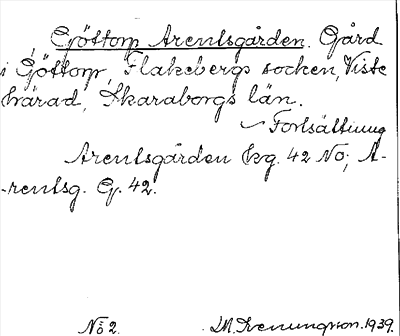 Göttorp Arentsgården. Gård
i Göttorp, Flakebergs socken, Viste
härad, Skaraborgs län.
Fortsättning
Arentsgården kg. 42 NO; A-
-rentsg. G. 42.
Nö 2.
1939.